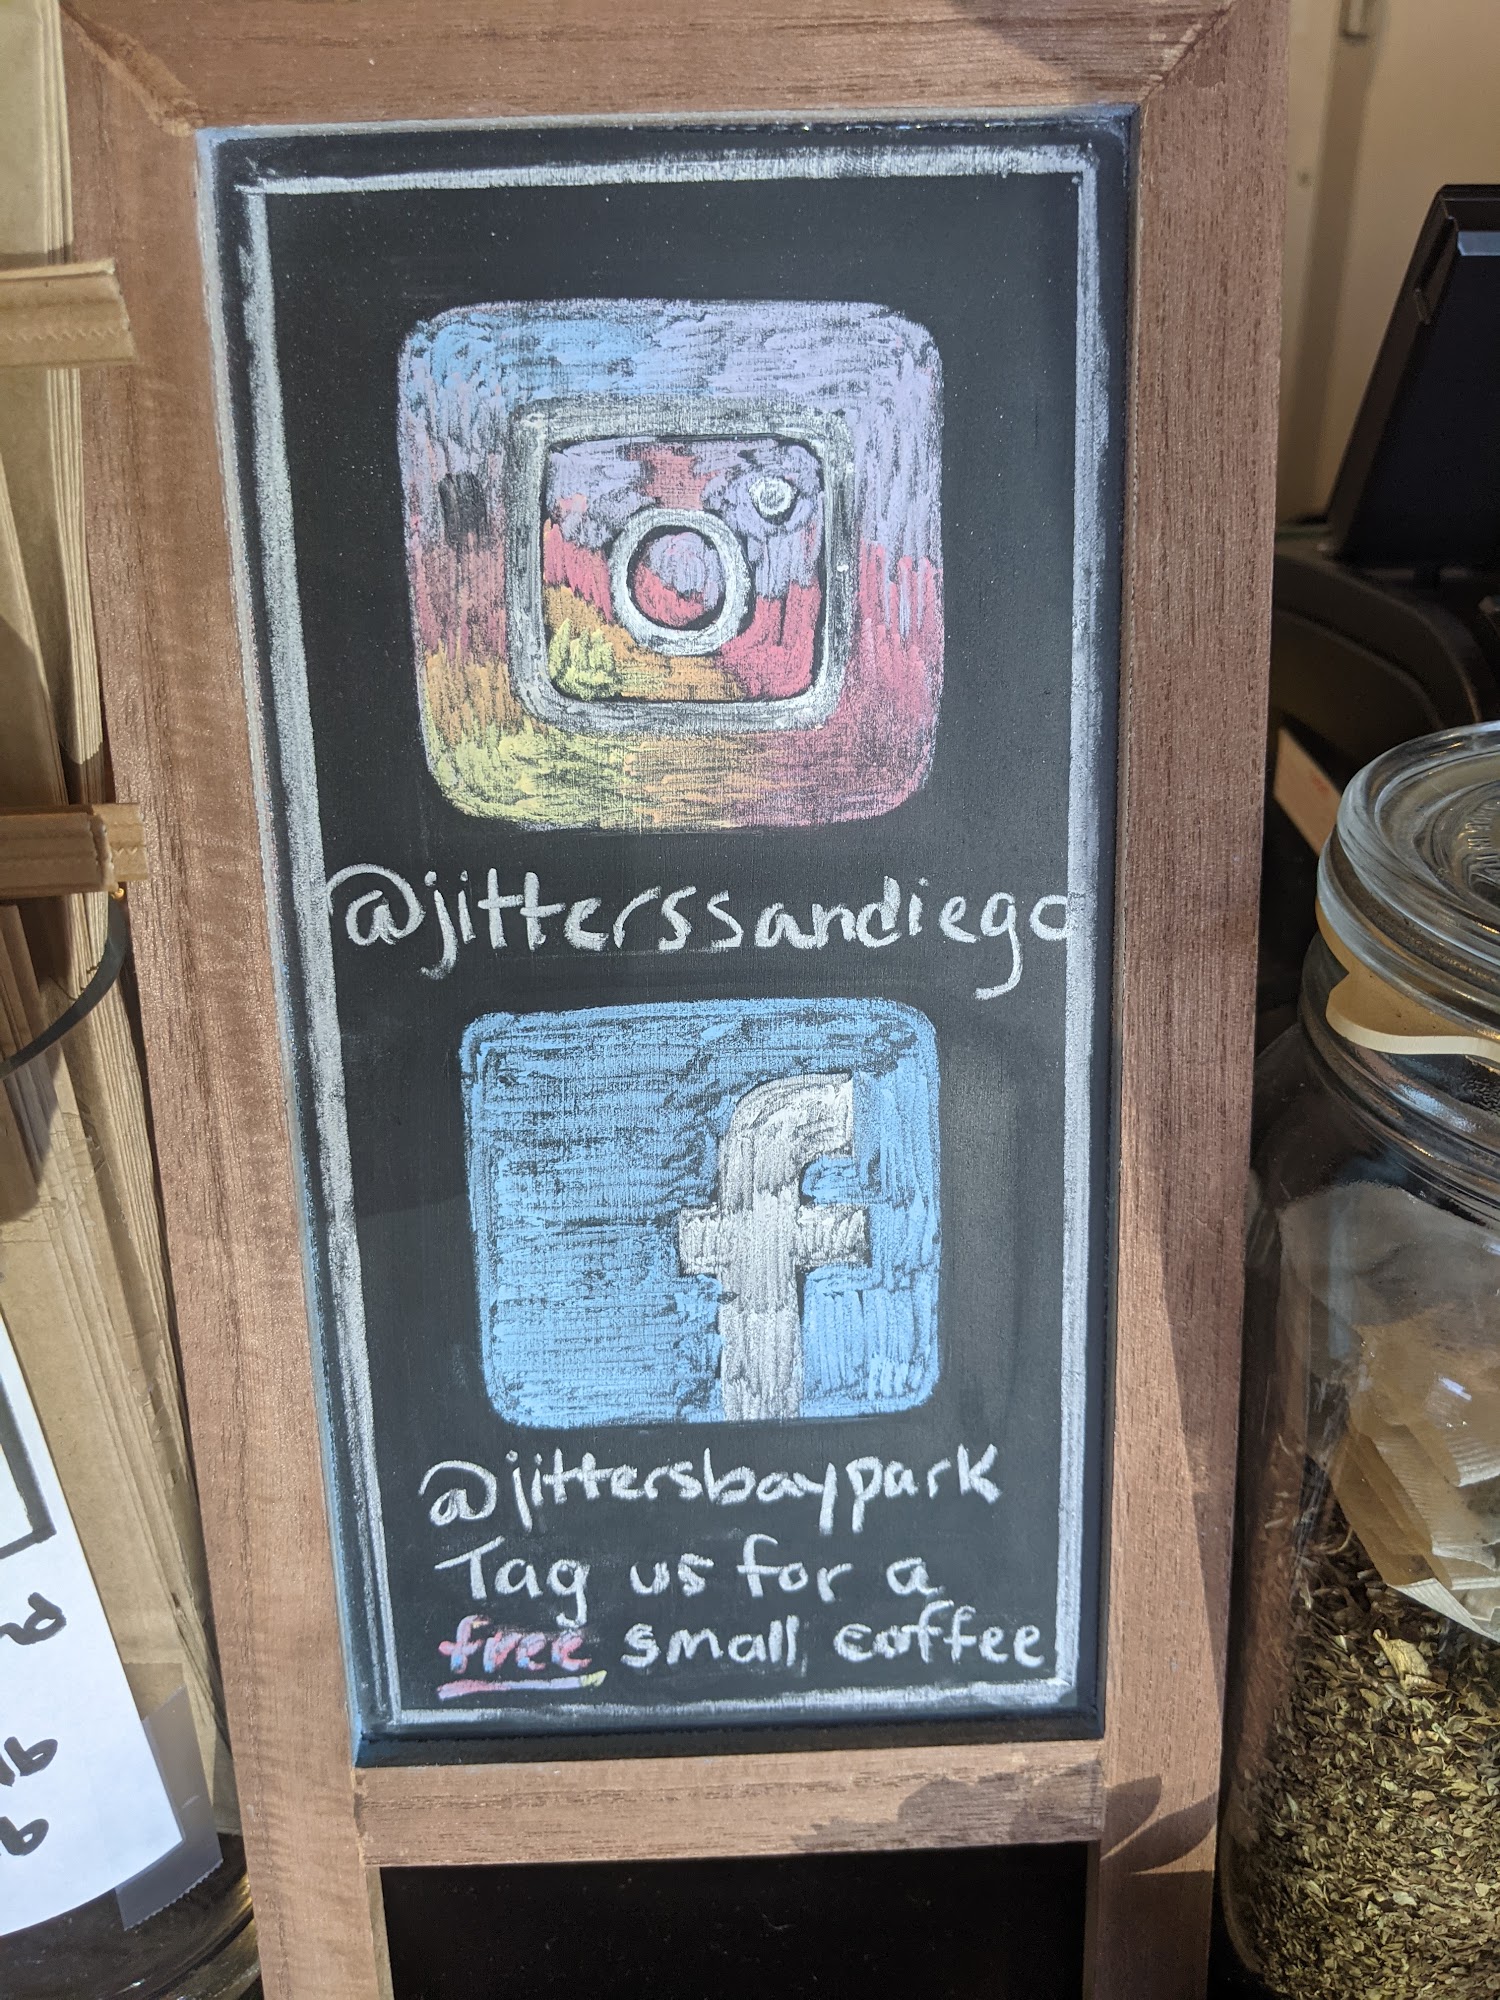 @jitterssandiego
f
@jittersbaypark
Tag us for a
free small coffee